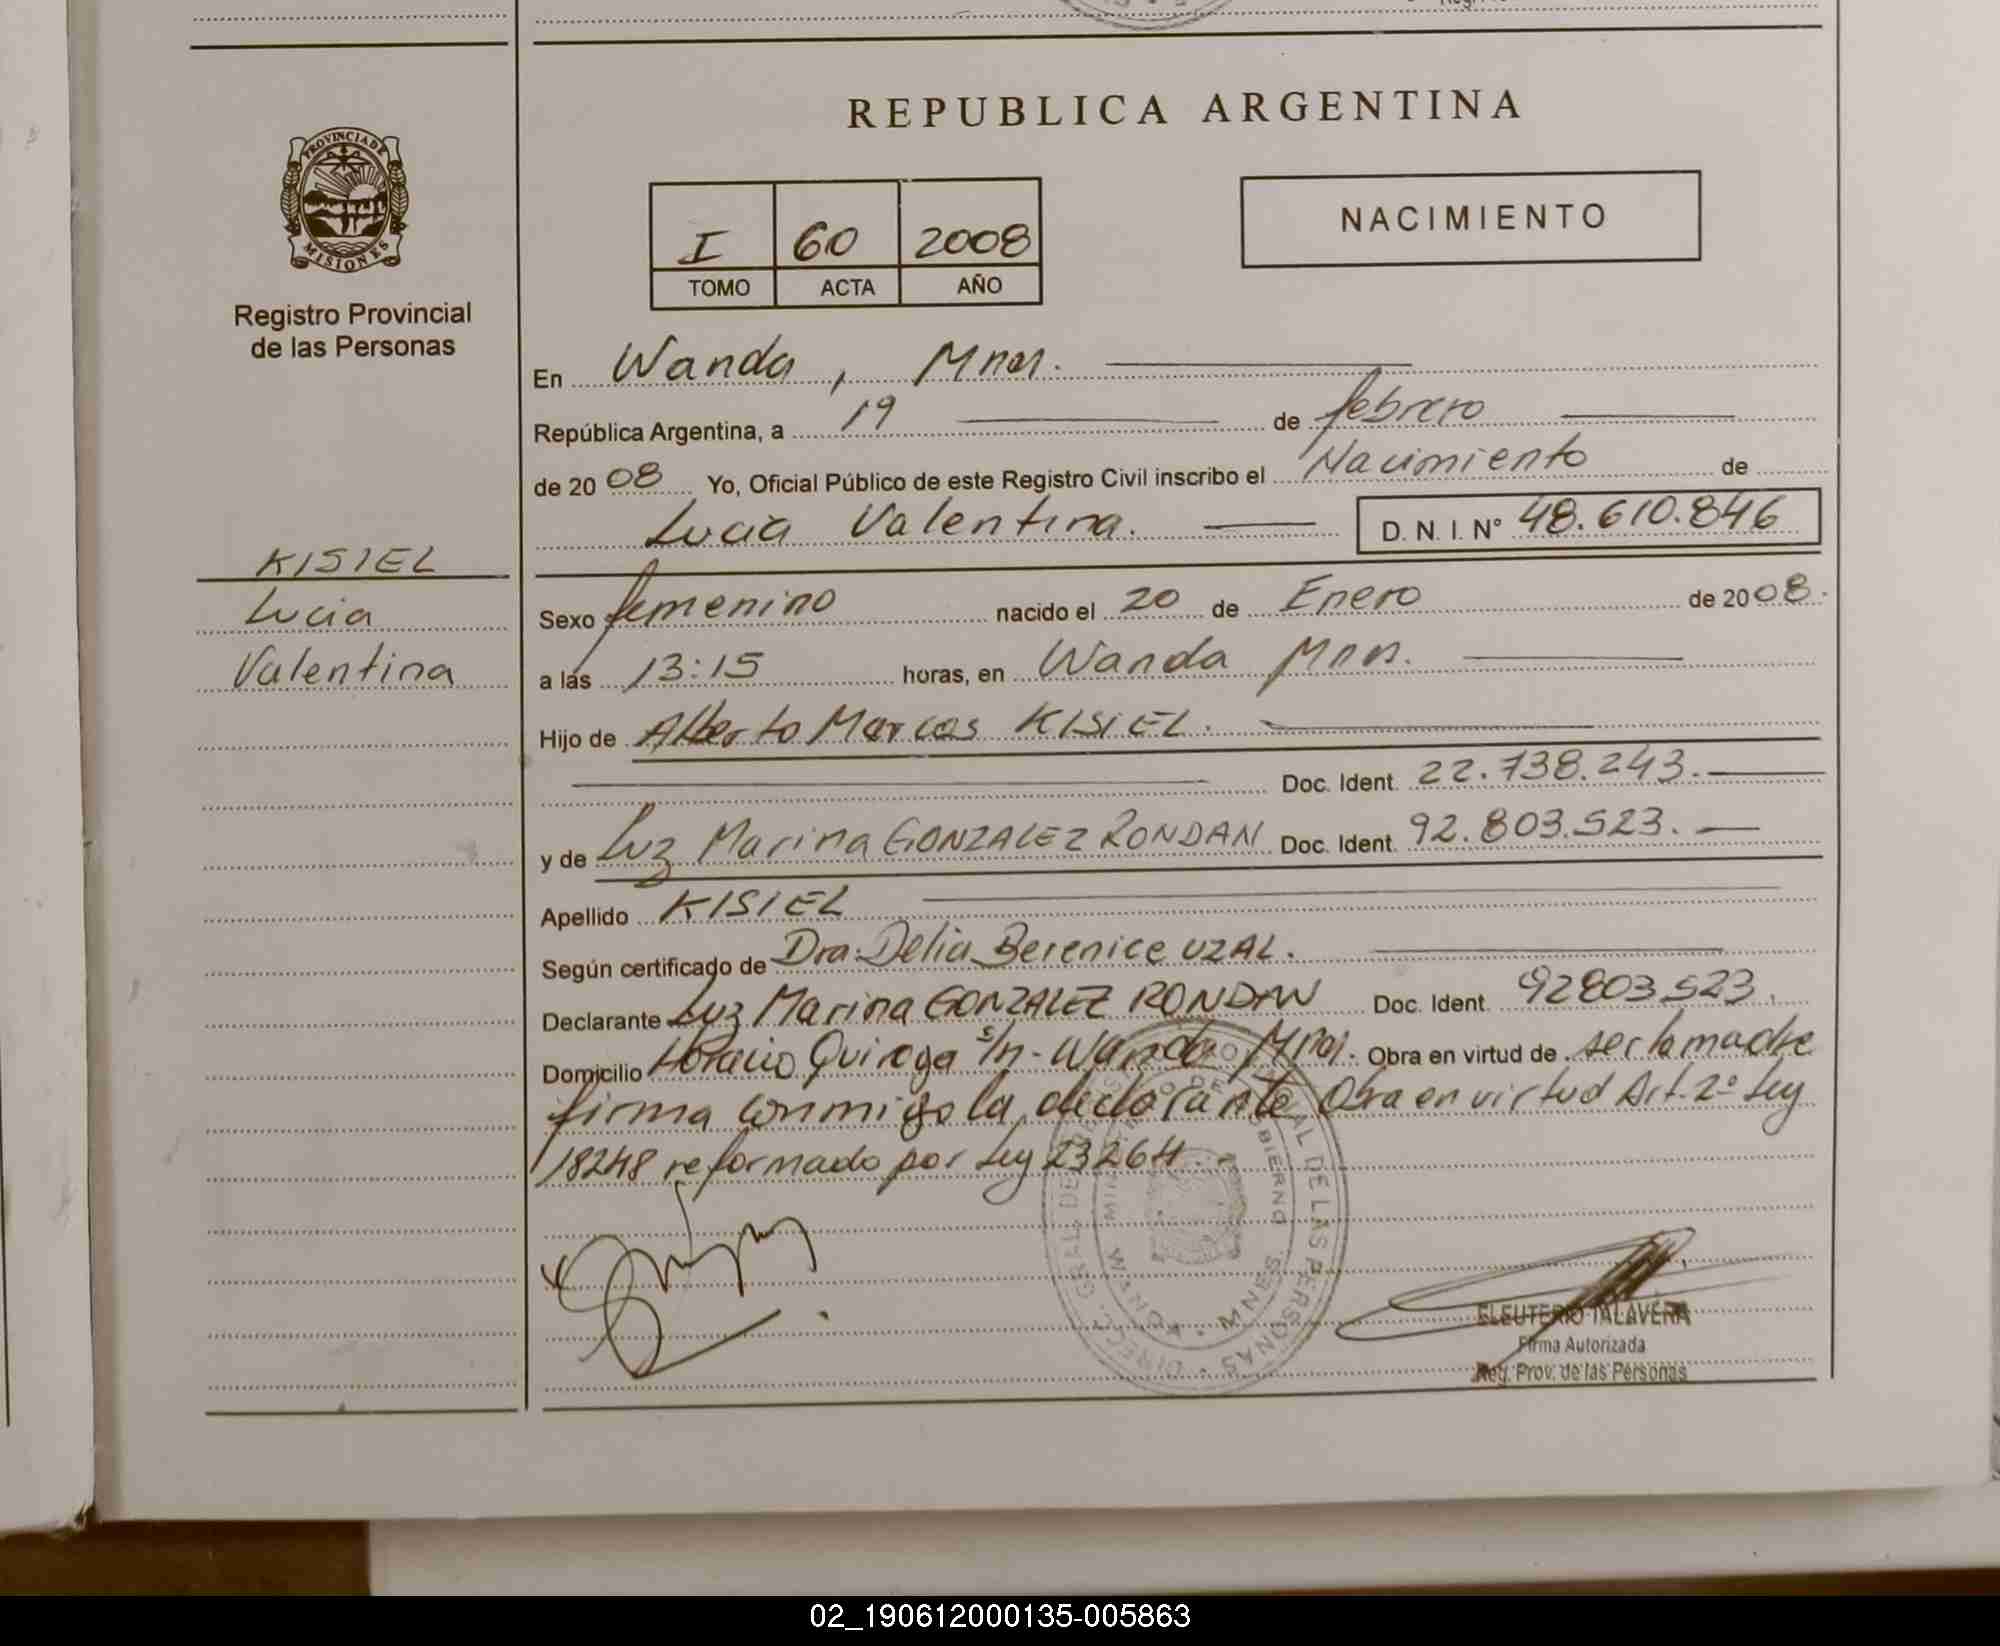 REPUBLICA ARGENTINA
PROVINCIA DE
MISIONES
Registro Provincial
de las Personas
I 60 2008
TOMO ACTA AÑO
NACIMIENTO
En Wanda, Mnes.
República Argentina, a 19 de febrero
de 2008 Yo, Oficial Público de este Registro Civil inscribo el Nacimiento de
Lucia Valentina. D. N. I. Nº 48.610.846
KISIEL
Lucia
Valentina
Sexo femenino nacido el 20 de Enero de 2008.
a las 13:15 horas, en Wanda Mnes.
Hijo de Alberto Marcos KISIEL.
Doc. Ident. 22.738.243.
y de Luz Marina GONZALEZ RONDAN Doc. Ident. 92.803.523.
Apellido KISIEL
Según certificado de Dra. Delia Berenice UZAL.
Declarante Luz Marina GONZALEZ RONDAN Doc. Ident. 92803523.
Domicilio Horacio Quiroga s/n - Wanda Mnes. Obra en virtud de ser la madre
firma conmigo la declarante Obra en virtud Art. 2º Ley
18248 reformado por Ley 23264.-
ELEUTERIO TALAVERA
Firma Autorizada
Reg. Prov. de las Personas
02_190612000135-005863